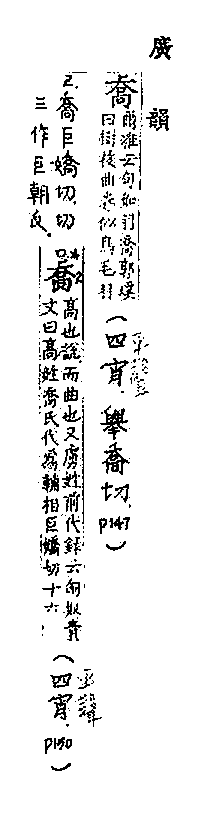 廣韻
喬 爾雅云句如羽喬郭璞
曰樹枝曲卷似鳥毛羽
(四宵，舉喬切，p147)
喬巨嬌切，切
三作巨朝反。
喬 高也說
文曰高
而曲也又虜姓前代錄云匈奴貴
姓喬氏代為輔相巨嬌切十六
(四宵，p150)